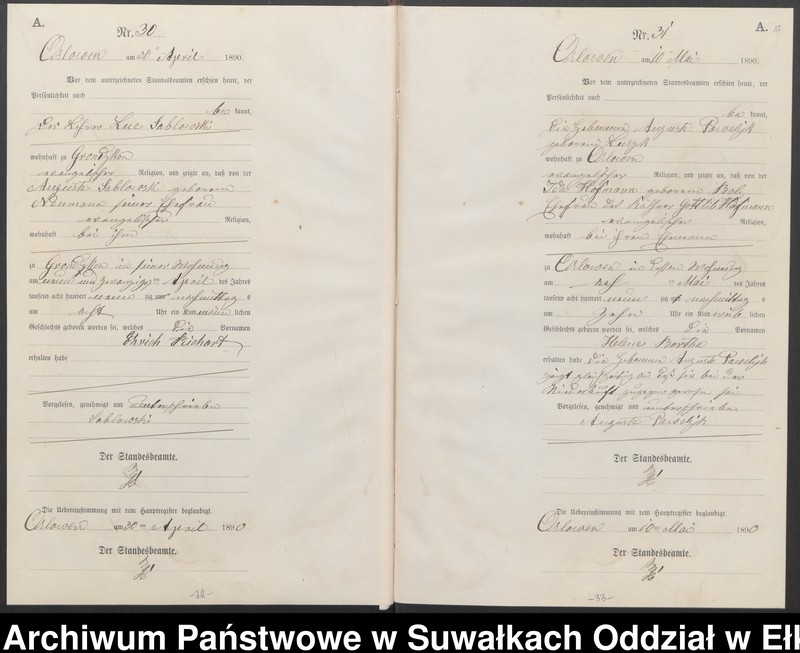 A.
Nr. 30
Orlowen am 30 April 1890.
Vor dem unterzeichneten Standesbeamten erschien heute, der
Persönlichkeit nach
be kannt,
der Lehrer Luc Sablowski
wohnhaft zu Grondzken
evangelischer Religion, und zeigte an, daß von der
Auguste Sablowski geborenen
Neumann seiner Ehefrau
evangelischer Religion,
wohnhaft bei ihm
zu Grondzken in seiner Wohnung
am neun und zwanzigsten April des Jahres
tausend acht hundert neunzig nachmittag s
um acht Uhr ein Kind männlichen
Geschlechts geboren worden sei, welches die Vornamen
Ehrich Richart
erhalten habe
Vorgelesen, genehmigt und unterschrieben
Sablowski
Der Standesbeamte.
Die Uebereinstimmung mit dem Hauptregister beglaubigt.
Orlowen am 30ten April 1890
Der Standesbeamte.
A.
Nr. 31
Orlowen am 10 Mai 1890.
Vor dem unterzeichneten Standesbeamten erschien heute, der
Persönlichkeit nach
be kannt,
die Hebamme Auguste Pawelzik
geborene
wohnhaft zu Orlowen
evangelischer Religion, und zeigte an, daß von der
Ida Hofmann geborenen
Ehefrau des Gottlieb Hofmann
evangelischer Religion,
wohnhaft bei ihrem Ehemann
zu Orlowen in dessen Wohnung
am Mai des Jahres
tausend acht hundert neunzig nachmittag s
um zehn Uhr ein Kind weiblichen
Geschlechts geboren worden sei, welches die Vornamen
Helene Bertha
erhalten habe. Die Hebamme Auguste Pawelzik
zeigt gleichzeitig an daß sie bei der
Niederkunft zugegen gewesen sei
Vorgelesen, genehmigt und unterschrieben
Auguste Pawelzik
Der Standesbeamte.
Die Uebereinstimmung mit dem Hauptregister beglaubigt.
Orlowen am 10ten Mai 1890
Der Standesbeamte.
-33-
Archiwum Państwowe w Suwałkach Oddział w Ełk